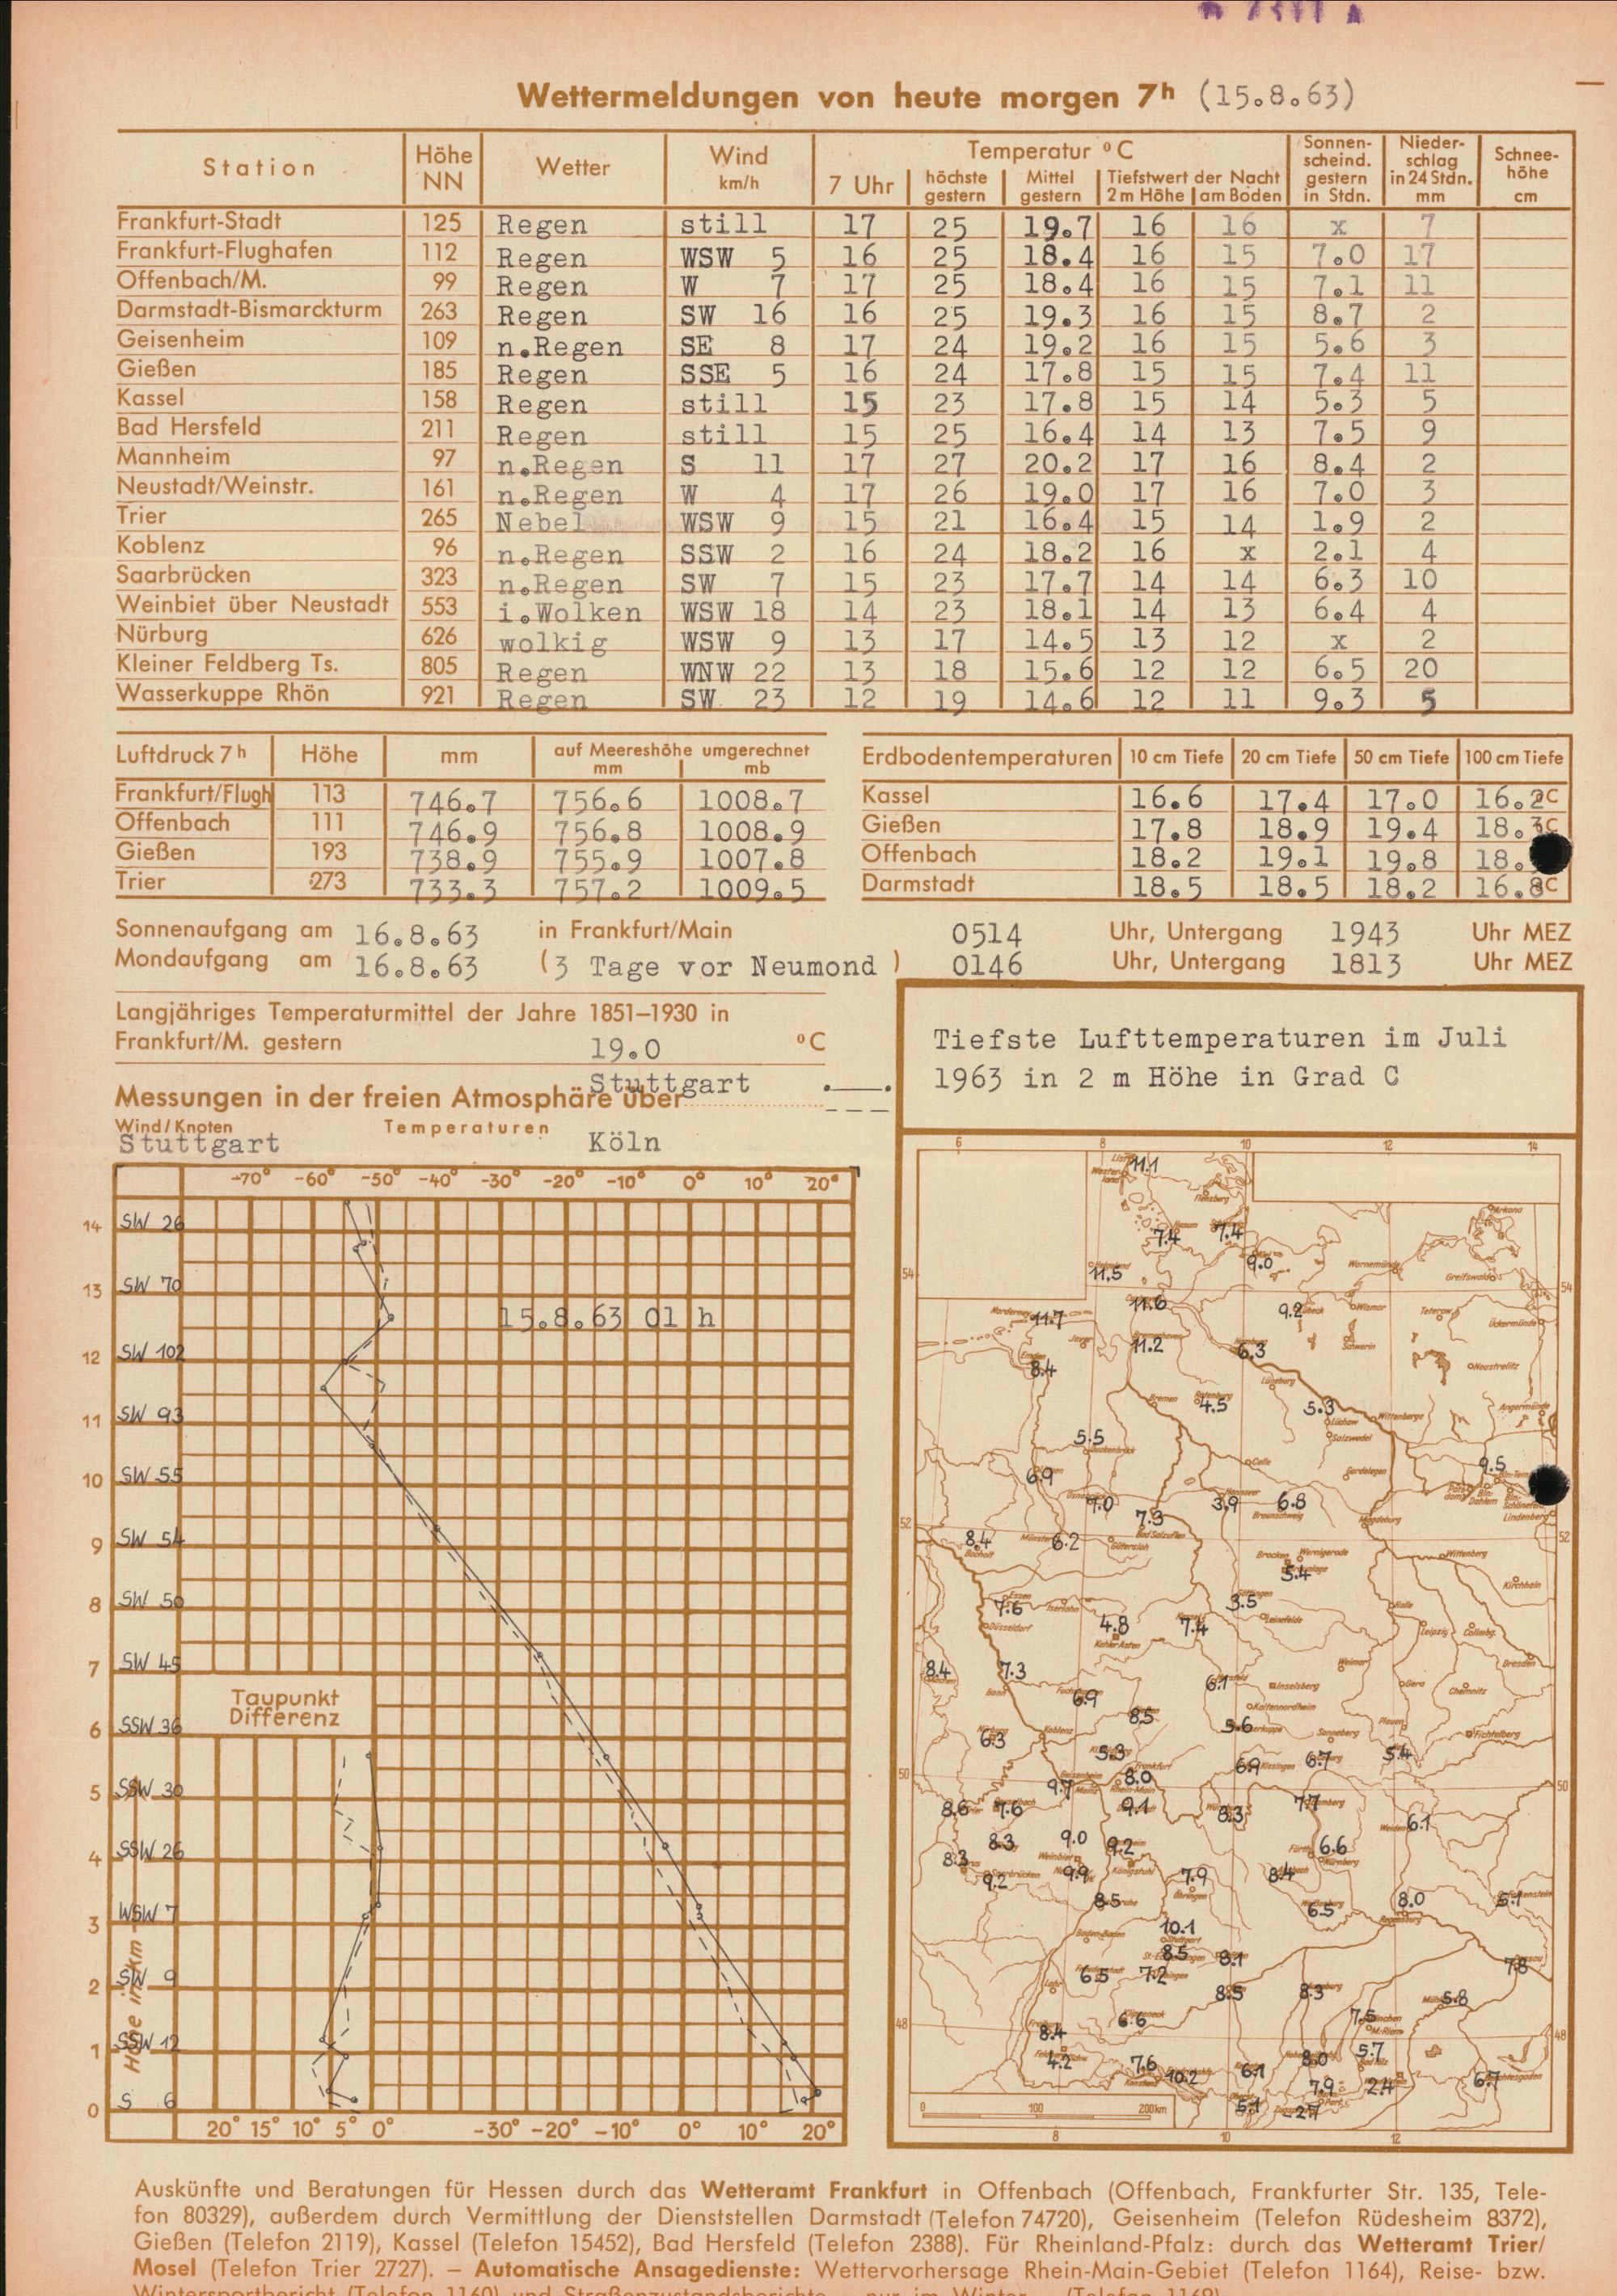 Wettermeldungen von heute morgen 7h (15.8.63)
Station Höhe NN Wetter Wind km/h Temperatur °C Sonnenscheind. gestern in Stdn. Niederschlag in 24 Stdn. mm Schneehöhe cm
7 Uhr höchste gestern Mittel gestern Tiefstwert der Nacht 2 m Höhe am Boden
Frankfurt-Stadt 125 Regen still 17 25 19.7 16 16 x 7
Frankfurt-Flughafen 112 Regen WSW 5 16 25 18.4 16 15 7.0 17
Offenbach/M. 99 Regen W 7 17 25 18.4 16 15 7.1 11
Darmstadt-Bismarckturm 263 Regen SW 16 16 25 19.3 16 15 8.7 2
Geisenheim 109 n.Regen SE 8 17 24 19.2 16 15 5.6 3
Gießen 185 Regen SSE 5 16 24 17.8 15 15 7.4 11
Kassel 158 Regen still 15 23 17.8 15 14 5.3 5
Bad Hersfeld 211 Regen still 15 25 16.4 14 13 7.5 9
Mannheim 97 n.Regen S 11 17 27 20.2 17 16 8.4 2
Neustadt/Weinstr. 161 n.Regen W 4 17 26 19.0 17 16 7.0 3
Trier 265 Nebel WSW 9 15 21 16.4 15 14 1.9 2
Koblenz 96 n.Regen SSW 2 16 24 18.2 16 x 2.1 4
Saarbrücken 323 n.Regen SW 7 15 23 17.7 14 14 6.3 10
Weinbiet über Neustadt 553 i.Wolken WSW 18 14 23 18.1 14 13 6.4 4
Nürburg 626 wolkig WSW 9 13 17 14.5 13 12 x 2
Kleiner Feldberg Ts. 805 Regen WNW 22 13 18 15.6 12 12 6.5 20
Wasserkuppe Rhön 921 Regen SW 23 12 19 14.6 12 11 9.3 5
Luftdruck 7h Höhe mm auf Meereshöhe umgerechnet mm mb
Frankfurt/Flugh 113 746.7 756.6 1008.7
Offenbach 111 746.9 756.8 1008.9
Gießen 193 738.9 755.9 1007.8
Trier 273 733.3 757.2 1009.5
Erdbodentemperaturen 10 cm Tiefe 20 cm Tiefe 50 cm Tiefe 100 cm Tiefe
Kassel 16.6 17.4 17.0 16.2 °C
Gießen 17.8 18.9 19.4 18.3 °C
Offenbach 18.2 19.1 19.8 18.
Darmstadt 18.5 18.5 18.2 16.8 °C
Sonnenaufgang am 16.8.63 in Frankfurt/Main 0514 Uhr, Untergang 1943 Uhr MEZ
Mondaufgang am 16.8.63 (3 Tage vor Neumond ) 0146 Uhr, Untergang 1813 Uhr MEZ
Langjähriges Temperaturmittel der Jahre 1851–1930 in
Frankfurt/M. gestern 19.0 °C
Messungen in der freien Atmosphäre über Stuttgart
Wind/Knoten Temperaturen
Stuttgart Köln
-70° -60° -50° -40° -30° -20° -10° 0° 10° 20°
14 SW 26
13 SW 70
15.8.63 01 h
12 SW 102
11 SW 93
10 SW 55
9 SW 54
8 SW 50
7 SW 45
Taupunkt
Differenz
6 SSW 36
5 SSW 30
4 SSW 26
3 WSW 7
2 SW 9
1 SSW 12
0 S 6
Höhe in km
20° 15° 10° 5° 0° -30° -20° -10° 0° 10° 20°
Tiefste Lufttemperaturen im Juli
1963 in 2 m Höhe in Grad C
6 8 10 12 14
11.1
Flensburg Arkona
7.4 7.4
9.0 Warnemünde
11.5 Greifswald
54 54
Norderney 11.7 11.6 9.2 Wismar Teterow
Ückermünde
Jever 11.2 6.3 Schwerin
Emden 8.4 Neustrelitz
Lüneburg
Bremen 4.5 5.3 Wittenberge Angermünde
Lüchow
Salzwedel
5.5
6.9 Celle Gardelegen 9.5
9.0 Hannover 3.9 6.8
7.3 Braunschweig Magdeburg Lindenberg
52 52
8.4 Münster 6.2 Bad Salzuflen
Bocholt Gütersloh Brocken Wernigerode Wittenberg
5.4
Kirchhain
Essen 7.6 Iserlohn 3.5 Göttingen Halle
Düsseldorf 4.8 7.4 Leinefelde Leipzig Collmbg.
Kahler Asten
Weimar Dresden
8.4 7.3 6.1 Inselsberg Gera Chemnitz
Bonn 6.9 Kaltennordheim
8.5 5.6 Sonneberg Plauen Fichtelberg
6.3 Koblenz
5.3 6.9 Kissingen 6.7 5.4
50 Geisenheim 8.0 Frankfurt 50
9.7 Mainz Rhein-Main
8.6 7.6 9.1 8.3 7.7
6.1
8.3 9.0 9.2 6.6
8.3 Weinbiet Nürnberg
9.2 Saarbrücken 9.9 Königstuhl 7.9 8.4
Öhringen
8.5 6.5 8.0 5.1
Regensburg
Baden-Baden 10.1 Stuttgart
8.5 8.1 7.8
Lahr 6.5 7.2
8.5 8.3 5.8
7.5
48 6.6 48
8.4
4.2 7.6 10.2 6.1 8.0 5.7
7.9 2.4 6.7
5.1 -2.7
0 100 200 km
8 10 12
Auskünfte und Beratungen für Hessen durch das Wetteramt Frankfurt in Offenbach (Offenbach, Frankfurter Str. 135, Tele-
fon 80329), außerdem durch Vermittlung der Dienststellen Darmstadt (Telefon 74720), Geisenheim (Telefon Rüdesheim 8372),
Gießen (Telefon 2119), Kassel (Telefon 15452), Bad Hersfeld (Telefon 2388). Für Rheinland-Pfalz: durch das Wetteramt Trier/
Mosel (Telefon Trier 2727). – Automatische Ansagedienste: Wettervorhersage Rhein-Main-Gebiet (Telefon 1164), Reise- bzw.
Wintersportbericht (Telefon 1160) und Straßenzustandsberichte – nur im Winter – (Telefon 1169)